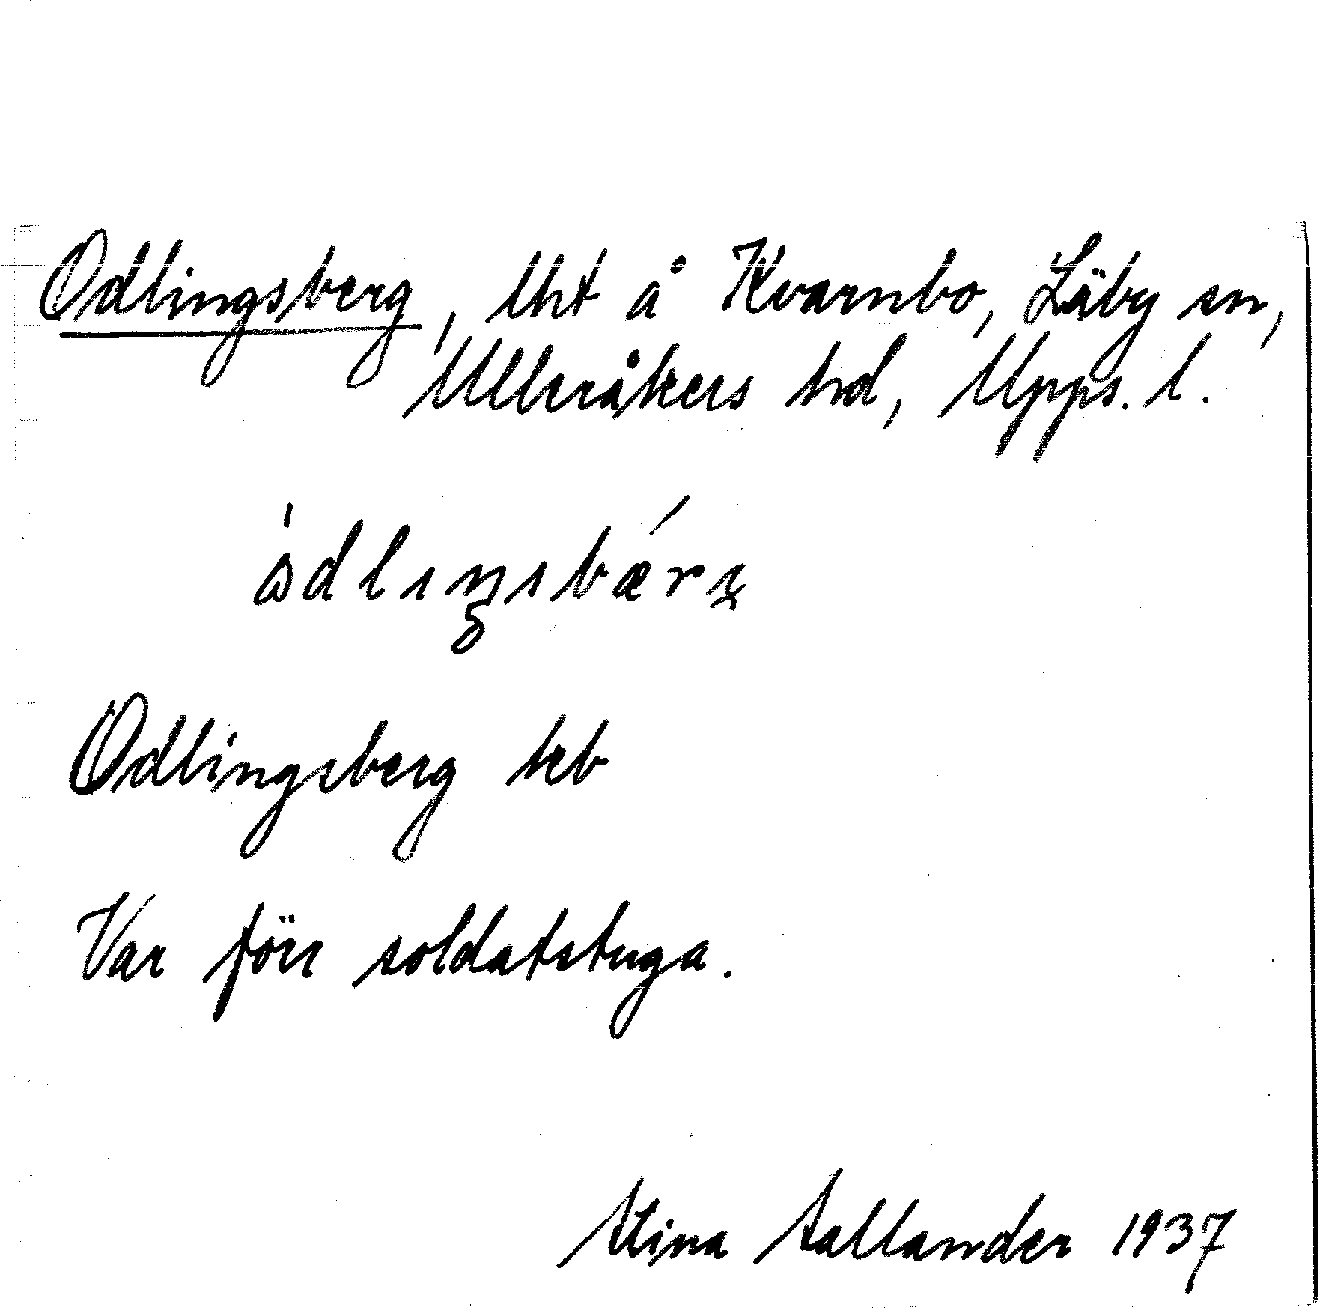 Odlingsberg, lht å Kvarnbo, Läby sn,
Ulleråkers hd, Upps. l.
Odlingsberg kb
Var förr soldatstuga.
Stina Sallander 1937